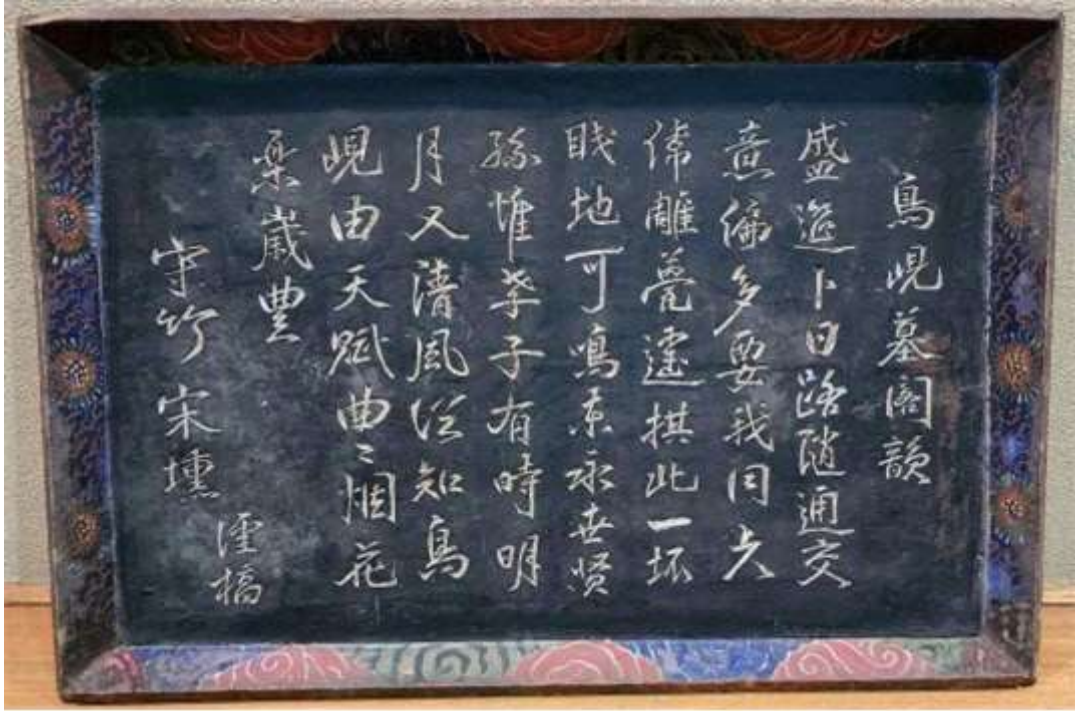 鳥峴墓閣韻
盛卜日路隨通交
意偏多要我同
雕甍遽拱此一坏
地可鳴東永世賢
孫惟孝子有時明
月又清風從知鳥
峴由天賦曲〻烟花
樂歲豊
守竹宋壎
謹稿